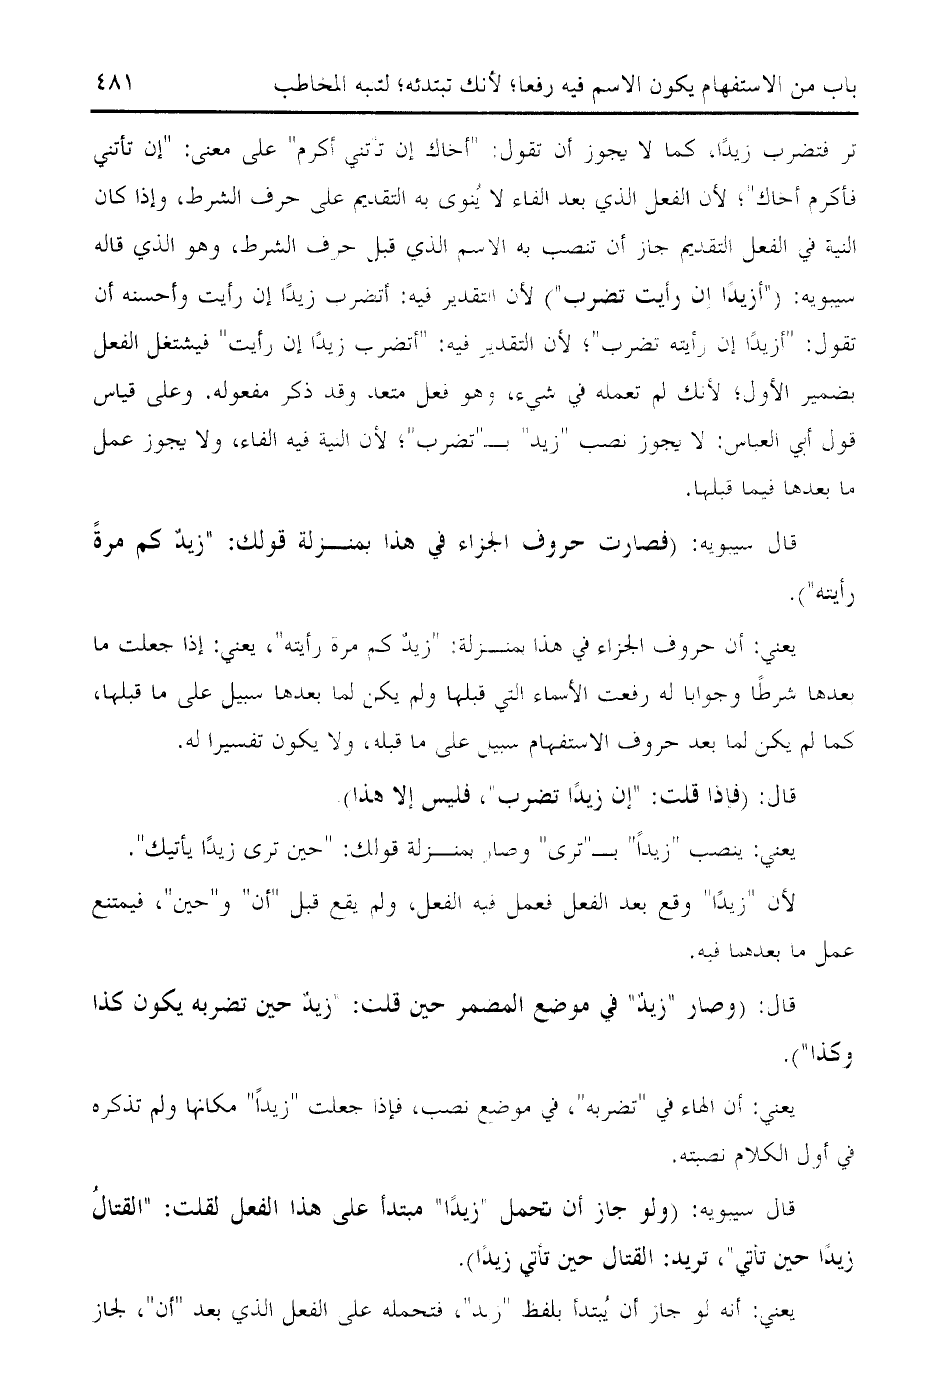 باب من الاستفهام يكون الاسم فيه رفعا؛ لأنك تبتدئه؛ لتنبه المخاطب ٤٨١
تر فتضرب زيدًا، كما لا يجوز أن تقول: "أخاك إن تأتني أكرم" على معنى: "إن تأتني
فأكرم أخاك"؛ لأن الفعل الذي بعد الفاء لا يُنوى به التقديم على حرف الشرط، وإذا كان
النية في الفعل التقديم جاز أن تنصب به الاسم الذي قبل حرف الشرط، وهو الذي قاله
سيبويه: ("أزيدًا إن رأيت تضرب") لأن التقدير فيه: أتضرب زيدًا إن رأيت وأحسنه أن
تقول: "أزيدًا إن رأيته تضرب"؛ لأن التقدير فيه: "أتضرب زيدًا إن رأيت" فيشتغل الفعل
بضمير الأول؛ لأنك لم تعمله في شيء، وهو فعل متعد وقد ذكر مفعوله. وعلى قياس
قول أبي العباس: لا يجوز نصب "زيد" بـ"تضرب"؛ لأن النية فيه الفاء، ولا يجوز عمل
ما بعدها فيما قبلها.
قال سيبويه: (فصارت حروف الجزاء في هذا بمنزلة قولك: "زيدٌ كم مرةً
رأيته").
يعني: أن حروف الجزاء في هذا بمنزلة: "زيدٌ كم مرة رأيته"، يعني: إذا جعلت ما
بعدها شرطًا وجوابا له رفعت الأسماء التي قبلها ولم يكن لما بعدها سبيل على ما قبلها،
كما لم يكن لما بعد حروف الاستفهام سبيل على ما قبله، ولا يكون تفسيرا له.
قال: (فإذا قلت: "إن زيدًا تضرب"، فليس إلا هذا)
يعني: ينصب "زيداً" بـ"ترى" وصار بمنزلة قولك: "حين ترى زيدًا يأتيك".
لأن "زيدًا" وقع بعد الفعل فعمل فيه الفعل، ولم يقع قبل "أن" و"حين"، فيمتنع
عمل ما بعدهما فيه.
قال: (وصار "زيدٌ" في موضع المضمر حين قلت: "زيدٌ حين تضربه يكون كذا
وكذا").
يعني: أن الهاء في "تضربه"، في موضع نصب، فإذا جعلت "زيداً" مكانها ولم تذكره
في أول الكلام نصبته.
قال سيبويه: (ولو جاز أن تحمل "زيدًا" مبتدأ على هذا الفعل لقلت: "القتالُ
زيدًا حين تأتي"، تريد: القتال حين تأتي زيدًا).
يعني: أنه لو جاز أن يُبتدأ بلفظ "زيد"، فتحمله على الفعل الذي بعد "أن"، لجاز